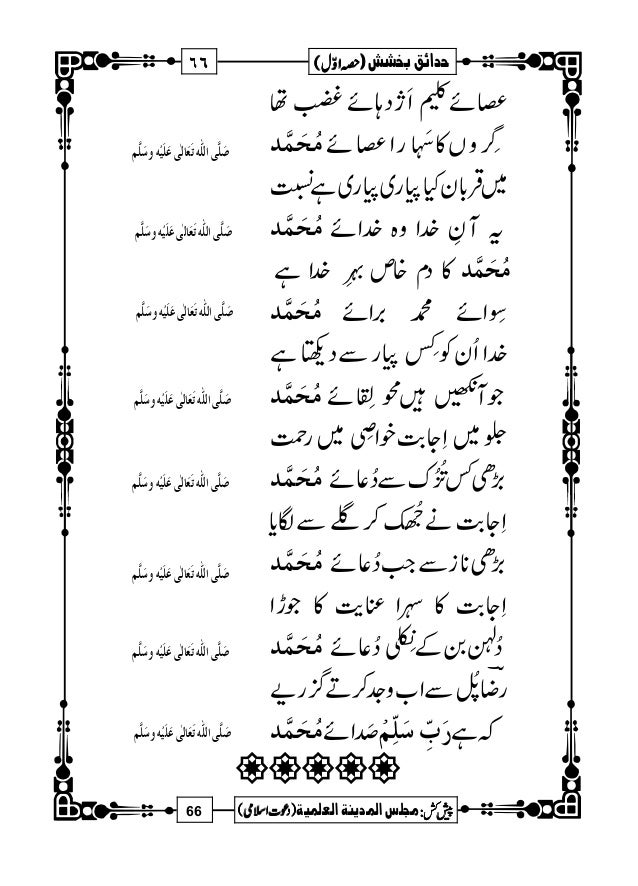 حدائق بخشش (حصہ اوّل) ٦٦
عصائے کلیم اَژدہائے غضب تھا
گِروں کا سَہارا عصائے مُحَمَّد صَلَّی اللہ تَعَالٰی عَلَیْہ وسَلَّم
میں قربان کیا پیاری پیاری ہے نسبت
یہ آنِ خدا وہ خدائے مُحَمَّد صَلَّی اللہ تَعَالٰی عَلَیْہ وسَلَّم
مُحَمَّد کا دم خاص بہرِ خدا ہے
سِوائے محمد برائے مُحَمَّد صَلَّی اللہ تَعَالٰی عَلَیْہ وسَلَّم
خدا اُن کو کِس پیار سے دیکھتا ہے
جو آنکھیں ہیں محوِ لِقائے مُحَمَّد صَلَّی اللہ تَعَالٰی عَلَیْہ وسَلَّم
جلو میں اِجابت خواصِی میں رحمت
بڑھی کس تُزُک سے دُعائے مُحَمَّد صَلَّی اللہ تَعَالٰی عَلَیْہ وسَلَّم
اِجابت نے جُھک کر گلے سے لگایا
بڑھی ناز سے جب دُعائے مُحَمَّد صَلَّی اللہ تَعَالٰی عَلَیْہ وسَلَّم
اِجابت کا سہرا عنایت کا جوڑا
دُلہن بن کے نِکلی دُعائے مُحَمَّد صَلَّی اللہ تَعَالٰی عَلَیْہ وسَلَّم
رضاؔ پُل سے اب وجد کرتے گزریے
کہ ہے رَبِّ سَلِّمْ صَدائے مُحَمَّد صَلَّی اللہ تَعَالٰی عَلَیْہ وسَلَّم
پیش کش: مجلس المدینۃ العلمیۃ (دعوت اسلامی) 66